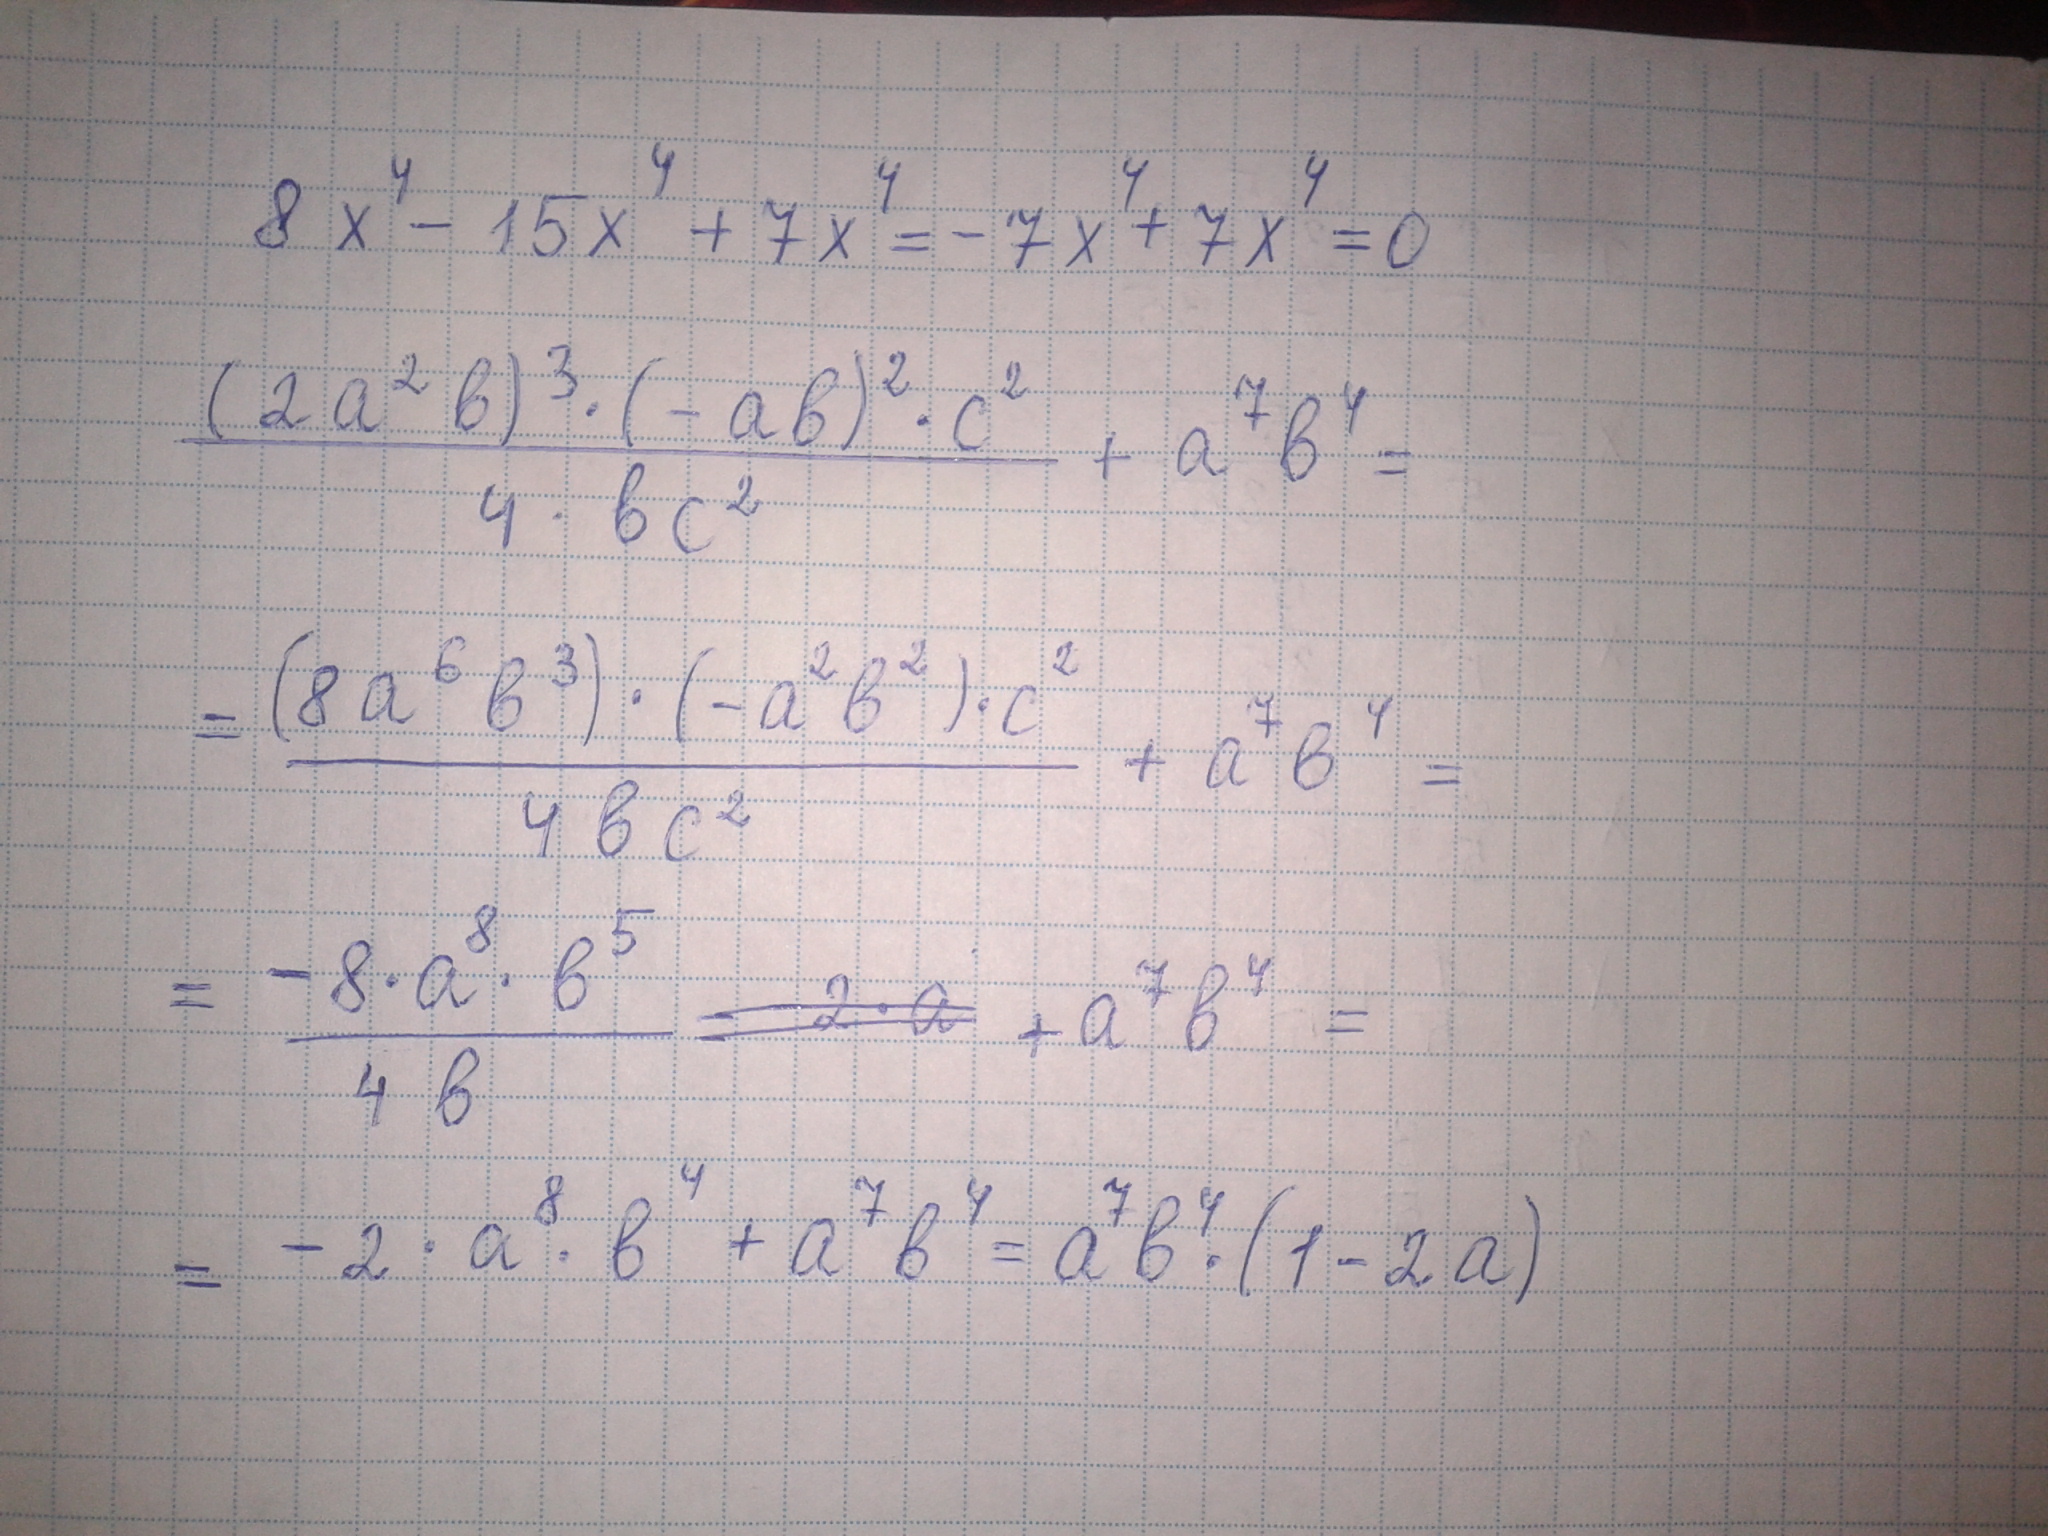 8x⁴ - 15x⁴ + 7x⁴ = -7x⁴ + 7x⁴ = 0
(2a²b)³ · (-ab)² · c² / 4 · bc² + a⁷b⁴ =
= (8a⁶b³) · (-a²b²) · c² / 4bc² + a⁷b⁴ =
= -8 · a⁸ · b⁵ / 4b = 2 · a + a⁷b⁴ =
= -2 · a⁸ · b⁴ + a⁷b⁴ = a⁷b⁴ · (1 - 2a)